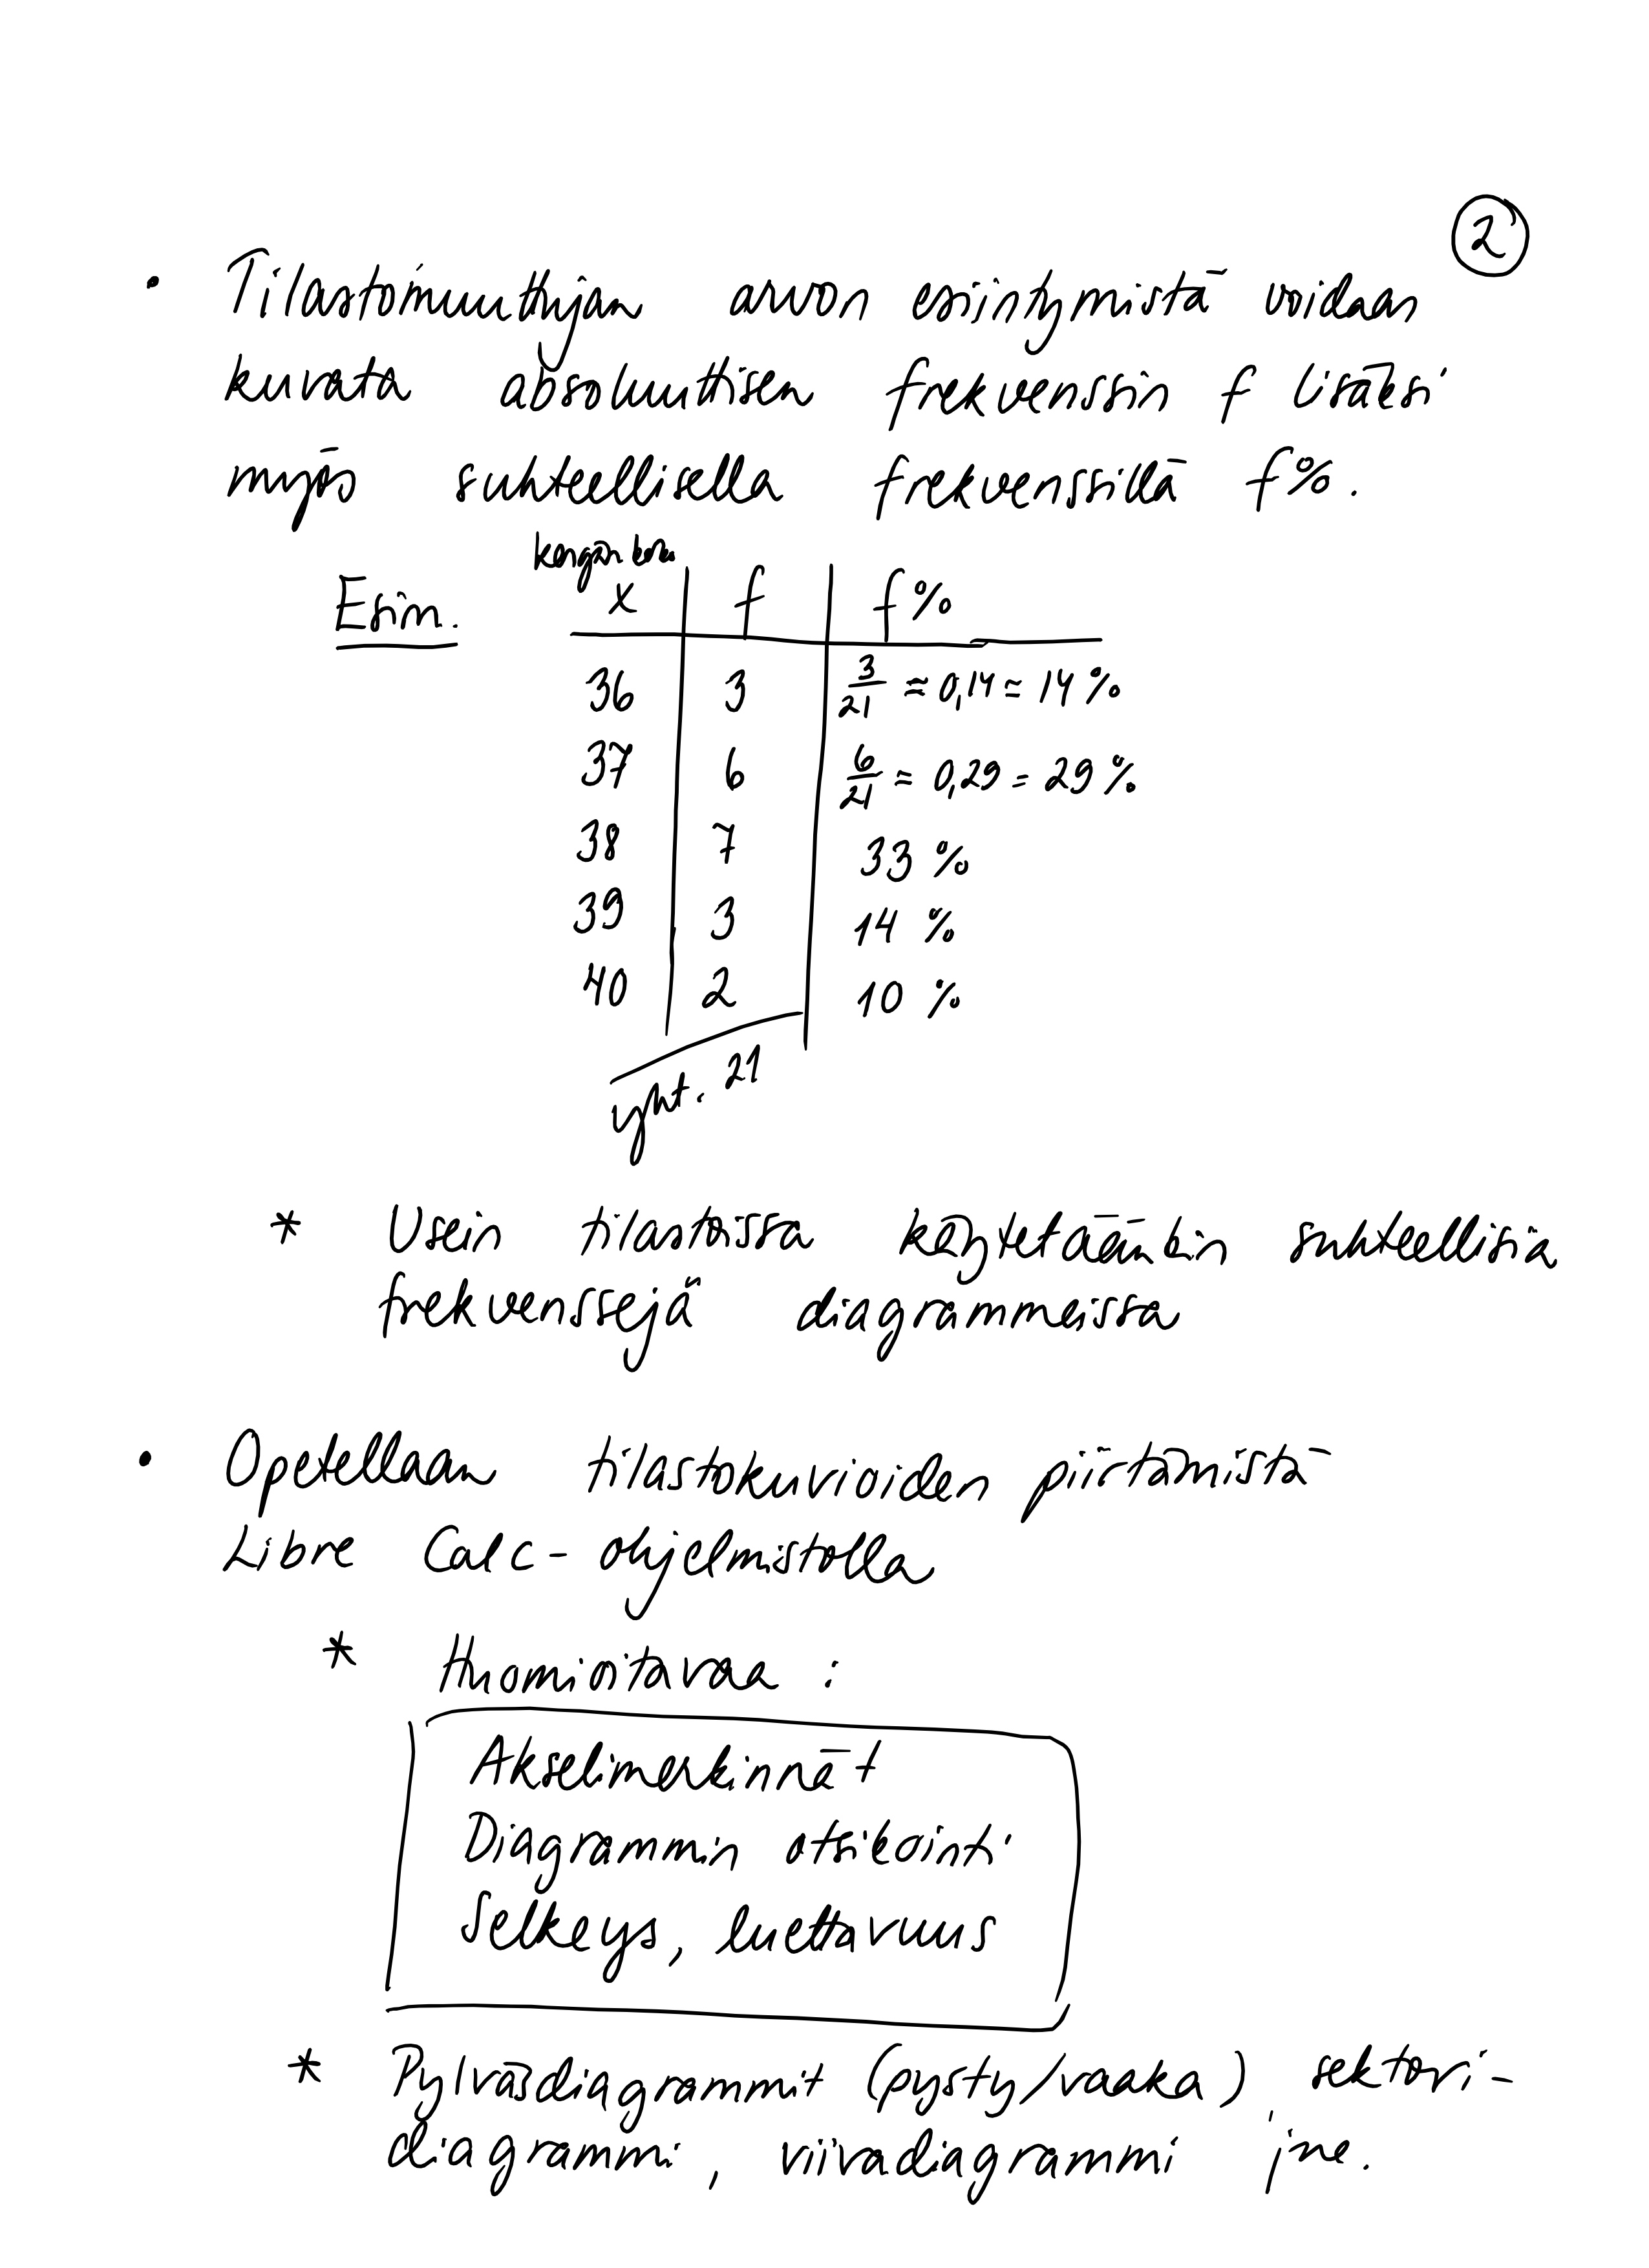 2
• Tilastomuuttujan arvon esiintymistä voidaan
kuvata absoluuttisen frekvenssin f lisäksi
myös suhteellisella frekvenssillä f%.
kengän koko
Esim. x f f%
36 3 3/21 ≈ 0,14 = 14 %
37 6 6/21 ≈ 0,29 = 29 %
38 7 33 %
39 3 14 %
40 2 10 %
yht. 21
* Usein tilastoissa käytetäänkin suhteellisia
frekvenssejä diagrammeissa
• Opetellaan tilastokuvioiden piirtämistä
Libre Calc - ohjelmistolla
* Huomioitavaa :
Akselimerkinnät
Diagrammin otsikointi
Selkeys, luettavuus
* Pylväsdiagrammit (pysty/vaaka) sektori-
diagrammi, viivadiagrammi jne.